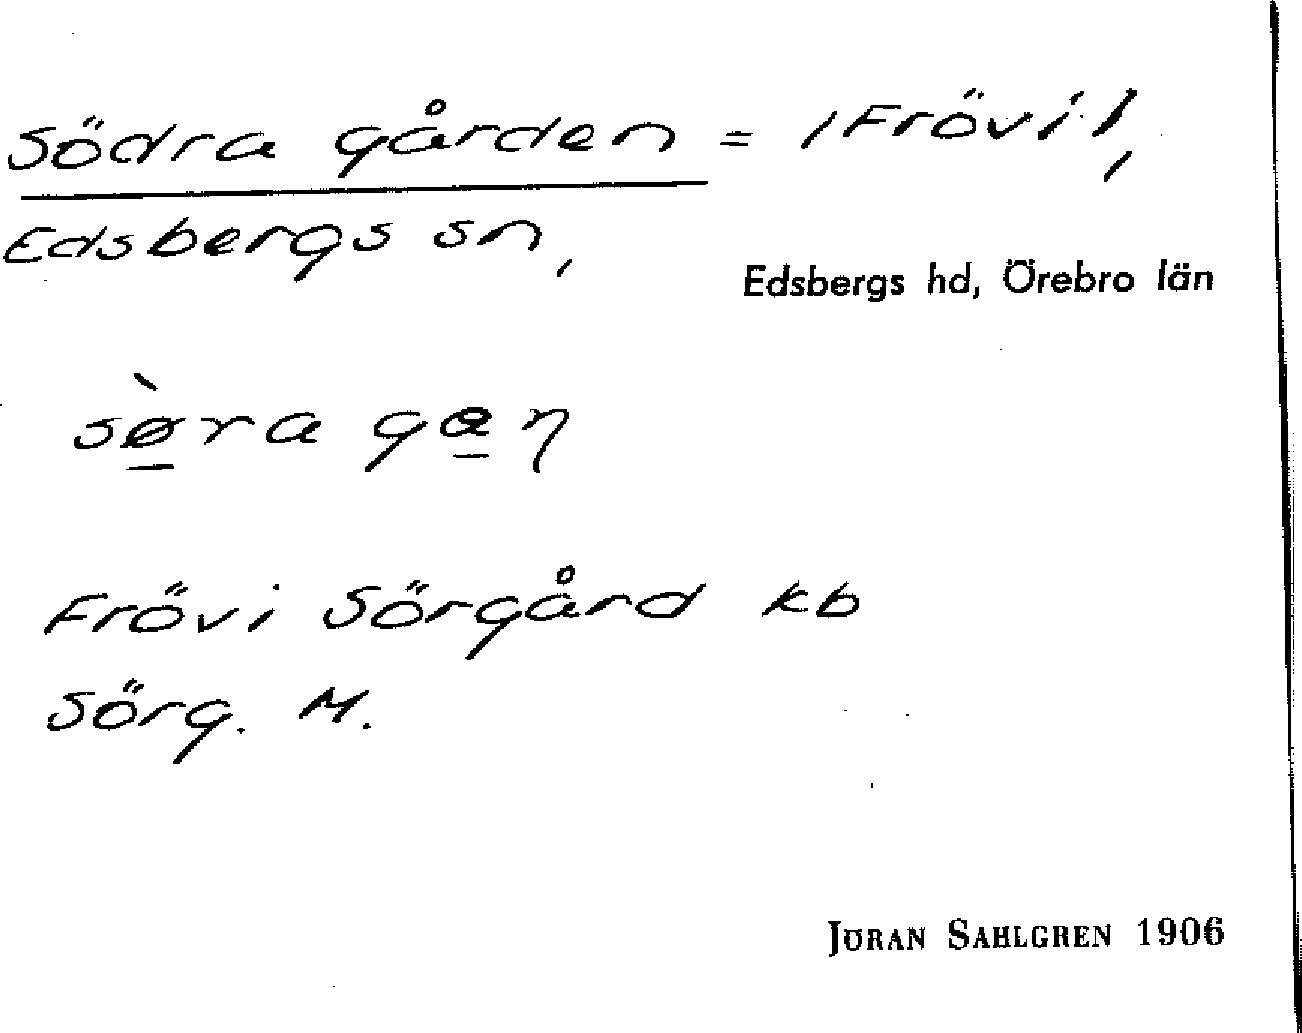 Södra gården = /Frövi/,
Edsbergs sn,
Edsbergs hd, Örebro län
sø̲̀ra ga̲ɳ
Frövi Sörgård kb
Sörg. M.
JÖRAN SAHLGREN 1906